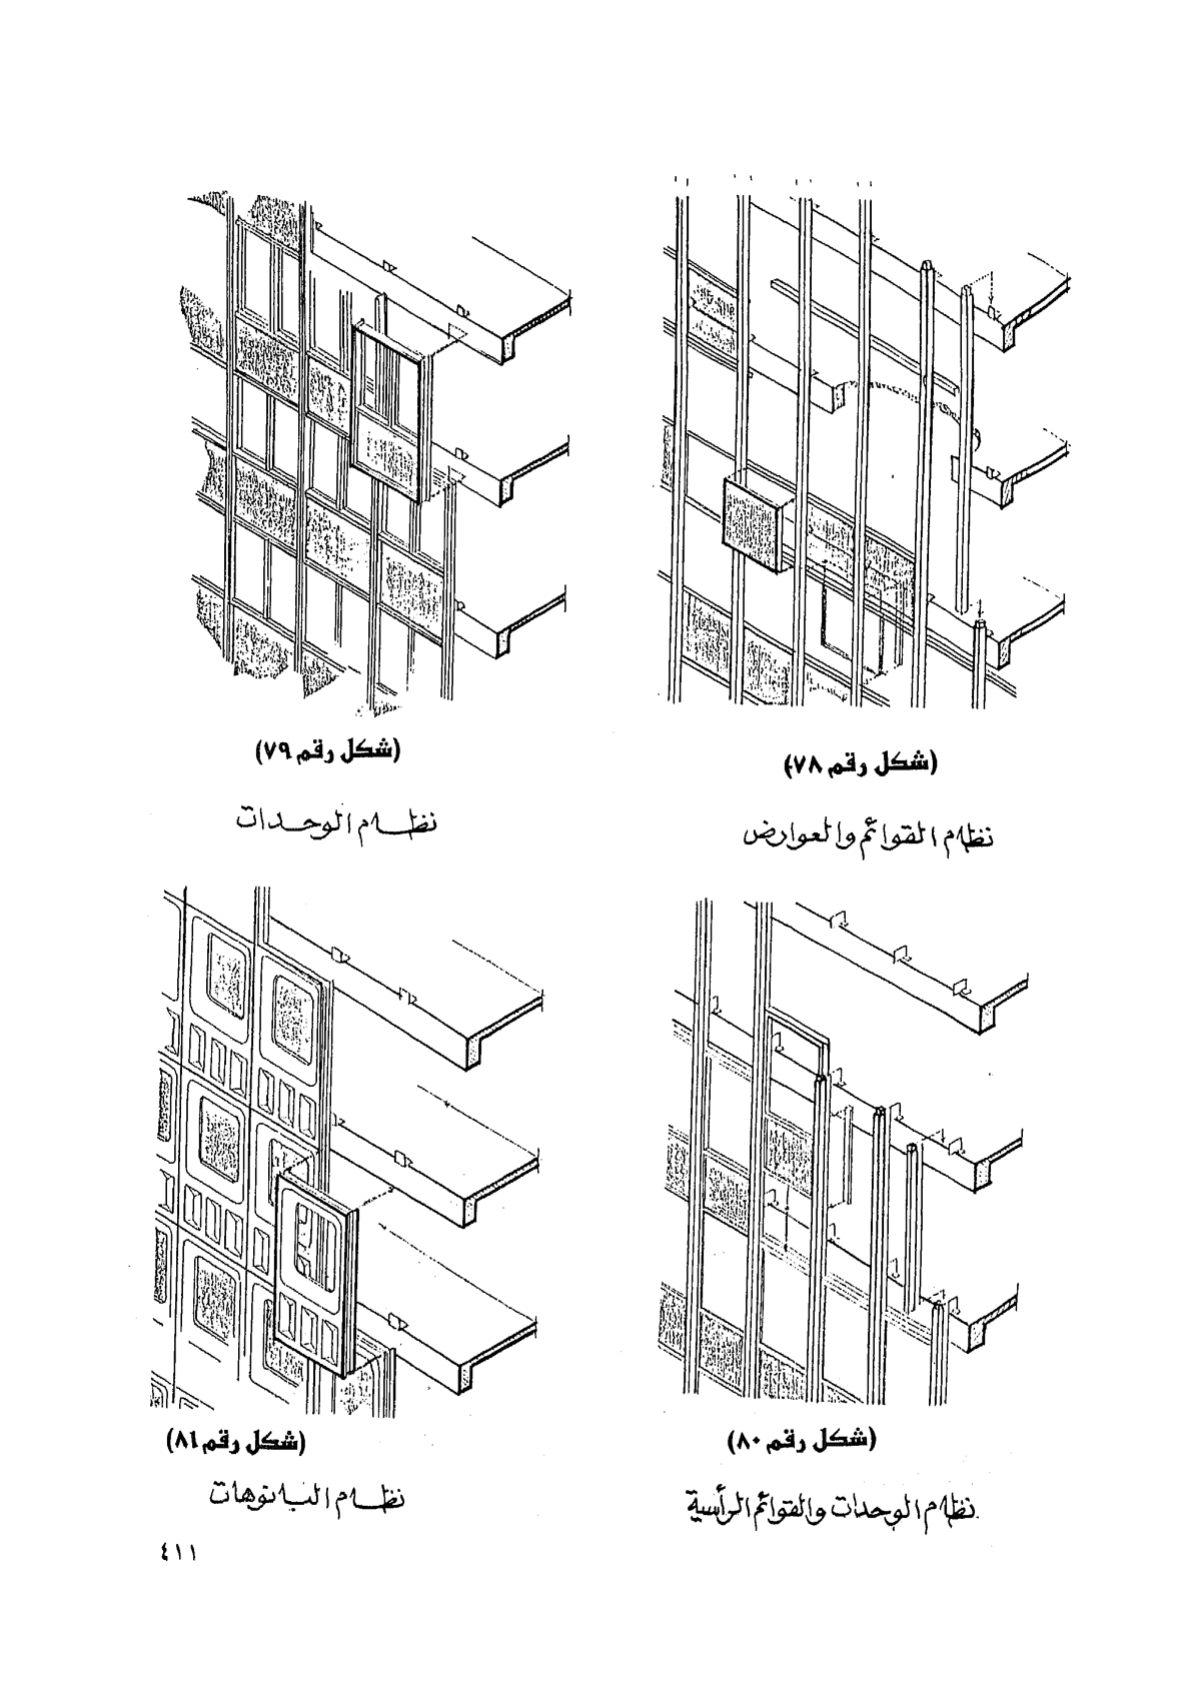 (شكل رقم ٧٨)
نظام القوائم والعوارض
(شكل رقم ٧٩)
نظام الوحدات
(شكل رقم ٨٠)
نظام الوحدات والقوائم الرأسية
(شكل رقم ٨١)
نظام البانوهات
٤١١